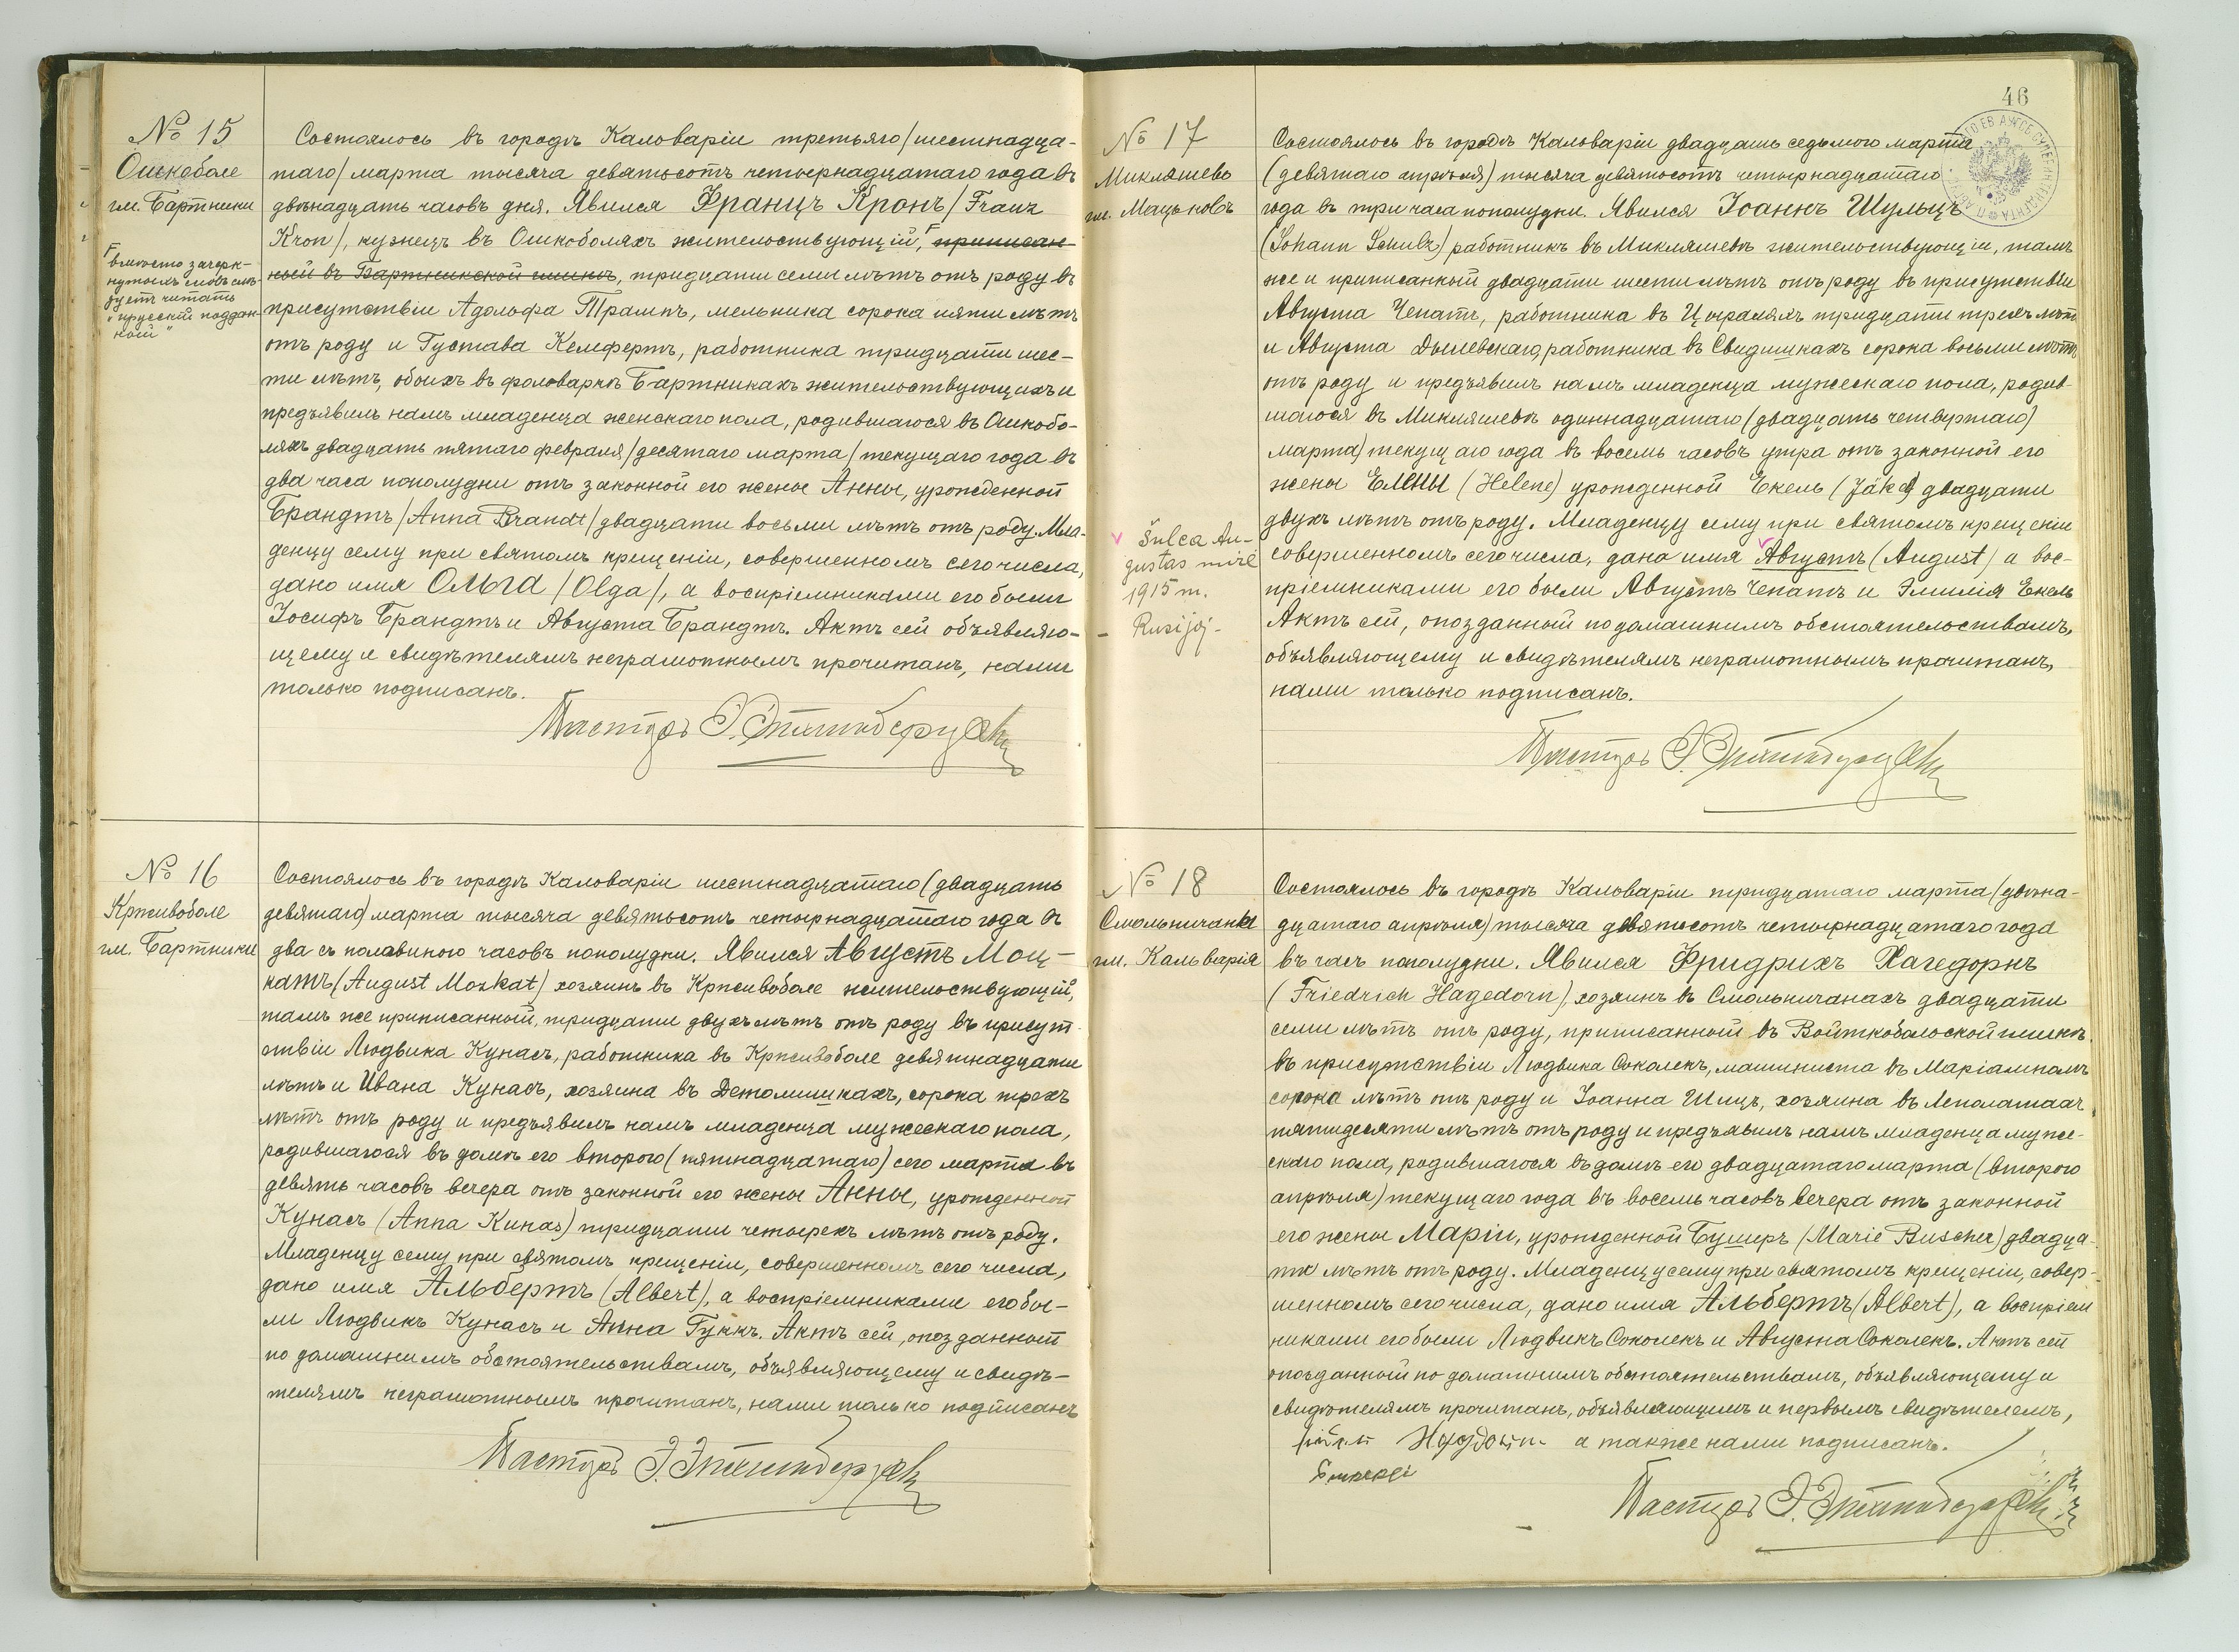 № 15
Ошкоболе
гм. Бартники
вмѣсто зачерк-
нутыхъ словъ слѣ-
дуетъ читать
"прусскій поддан-
ный"
Состоялось въ городѣ Кальваріи третьяго/шестнадца-
таго/ марта тысяча девятьсотъ четырнадцатаго года въ
двѣнадцать часовъ дня. Явился Францъ Кронъ/Franz
Kron/, кузнецъ въ Ошкоболяхъ жительствующій, приписан-
ный въ Бартникской гминѣ, тридцати семи лѣтъ отъ роду въ
присутствіи Адольфа Трампъ, мельника сорока пяти лѣтъ
отъ роду и Густава Кемфертъ, работника тридцати шес-
ти лѣтъ, обоихъ въ фольваркѣ Бартникахъ жительствующихъ и
предъявилъ намъ младенца женскаго пола, родившагося въ Ошкобо-
ляхъ двадцать пятаго февраля/десятаго марта/текущаго года въ
два часа пополудни отъ законной его жены Анны, урожденной
Брандтъ/Anna Brandt/двадцати восьми лѣтъ отъ роду. Мла-
денцу сему при святомъ крещеніи, совершенномъ сего числа,
дано имя Ольга/Olga/, а воспріемниками его были
Іосифъ Брандтъ и Августа Брандтъ. Актъ сей объявляю-
щему и свидѣтелямъ неграмотнымъ прочитанъ, нами
только подписанъ.
Пасторъ
№ 16
Крживоболе
гм. Бартники
Состоялось въ городѣ Кальваріи шестнадцатаго (двадцать
девятаго) марта тысяча девятьсотъ четырнадцатаго года въ
два съ половиною часовъ пополудни. Явился Августъ Моц-
катъ (August Mozkat) хозяинъ въ Крживоболе жительствующій,
тамъ же приписанный, тридцати двухъ лѣтъ отъ роду въ присут-
ствіи Людвика Кунасъ, работника въ Крживоболе девятнадцати
лѣтъ и Ивана Кунасъ, хозяина въ Детомишкахъ, сорока трехъ
лѣтъ отъ роду и предъявилъ намъ младенца мужескаго пола,
родившагося въ домѣ его второго (пятнадцатаго) сего марта въ
девять часовъ вечера отъ законной его жены Анны, урожденной
Кунасъ (Anna Kunas) тридцати четырехъ лѣтъ отъ роду.
Младенцу сему при святомъ крещеніи, совершенномъ сего числа,
дано имя Альбертъ (Albert), а воспріемниками его бы-
ли Людвикъ Кунасъ и Анна Гуккъ. Актъ сей, опозданный
по домашнимъ обстоятельствамъ, объявляющему и свидѣ-
телямъ неграмотнымъ прочитанъ, нами только подписанъ
Пасторъ
46
№ 17
Микляшево
гм. Мацьковъ
Šulca Au-
gustas mirė
1915 m.
Rusijoj-
Состоялось въ городѣ Кальваріи двадцать седьмого марта
(девятаго апрѣля) тысяча девятьсотъ четырнадцатаго
года въ три часа пополудни. Явился Іоаннъ Шульцъ
(Johann Schulz) работникъ въ Микляшевѣ жительствующій, тамъ
же и приписанный двадцати шести лѣтъ отъ роду въ присутствіи
Августа Чепатъ, работника въ тридцати трехъ лѣтъ
и Августа Дылевскаго, работника въ Свидишкахъ сорока восьми лѣтъ
отъ роду и предъявилъ намъ младенца мужескаго пола, родив-
шагося въ Микляшевѣ одиннадцатаго (двадцать четвертаго)
марта) текущаго года въ восемь часовъ утра отъ законной его
жены Елены (Helene) урожденной Екель (Jäkel) двадцати
двухъ лѣтъ отъ роду. Младенцу сему при святомъ крещеніи
совершенномъ сего числа, дано имя Августъ (August) а вос-
пріемниками его были Августъ Чепатъ и Эмилія Екель
Актъ сей, опозданный по домашнимъ обстоятельствамъ,
объявляющему и свидѣтелямъ неграмотнымъ прочитанъ,
нами только подписанъ.
Пасторъ
№ 18
Смольничанка
гм. Кальварія
Состоялось въ городѣ Кальваріи тридцатаго марта (двѣна-
дцатаго апрѣля) тысяча девятьсотъ четырнадцатаго года
въ часъ пополудни. Явился Фридрихъ Хагедорнъ
(Friedrich Hagedorn), хозяинъ въ Смольничанахъ двадцати
семи лѣтъ отъ роду, приписанный въ Войткобольской гминѣ
въ присутствіи Людвика Соколекъ, машиниста въ Маріамполѣ
сорока лѣтъ отъ роду и Іоанна Шицъ, хозяина въ
пятидесяти лѣтъ отъ роду и предъявилъ намъ младенца муже-
скаго пола, родившагося въ домѣ его двадцатаго марта (второго
апрѣля) текущаго года въ восемь часовъ вечера отъ законной
его жены Маріи, урожденной Бушеръ (Marie Buscher) двадца-
ти лѣтъ отъ роду. Младенцу сему при святомъ крещеніи, совер-
шенномъ сего числа, дано имя Альбертъ (Albert), а воспріем
никами его были Людвикъ Соколекъ и Августа Соколекъ. Актъ сей
опозданный по домашнимъ обстоятельствамъ, объявляющему и
свидѣтелямъ прочитанъ, объявляющимъ и первымъ свидѣтелемъ,
а также нами подписанъ.
Пасторъ